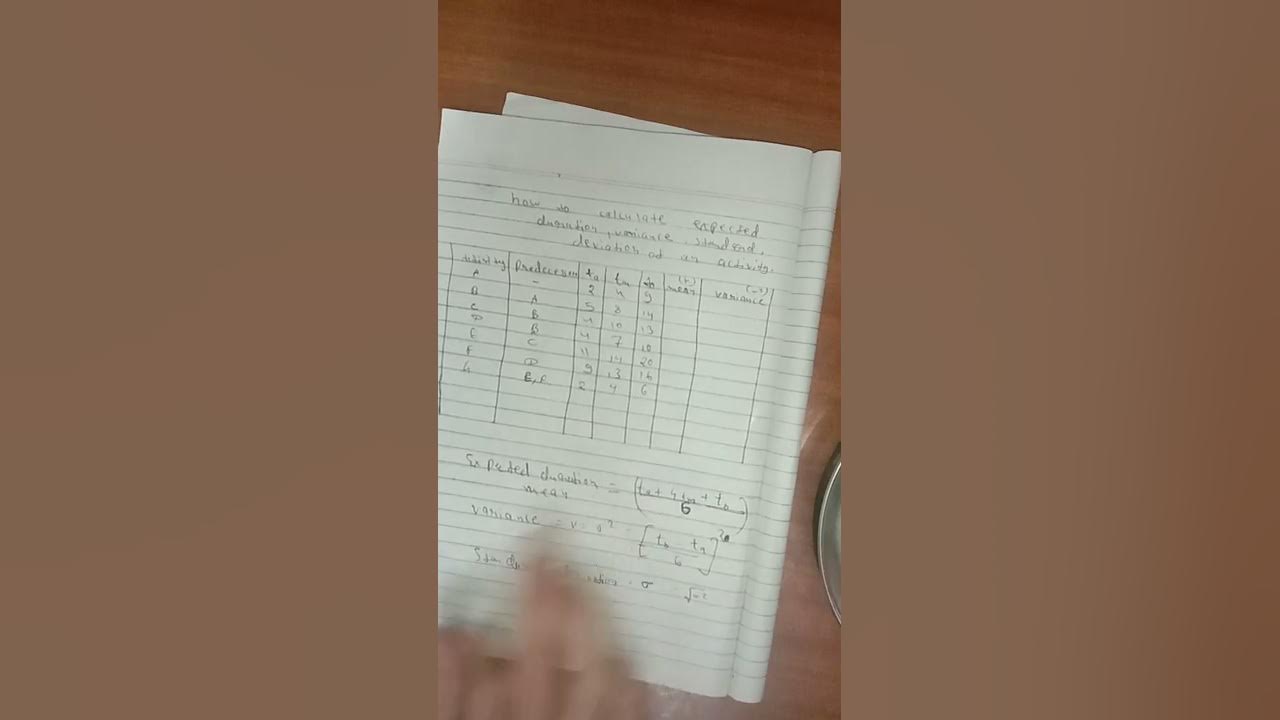 how to calculate expected
duration, variance, standard,
deviation of an activity.
Activity Predecessor ta tm tb (μ) mean variance
A - 2 4 9
B A 5 8 14
C B 4 10 13
D B 4 7 10
E C 11 14 20
F D 9 13 16
2 4 6
Expected duration = (ta + 4tm + tb / 6)
mean
variance = v = σ² = [tb - ta / 6]²
= σ